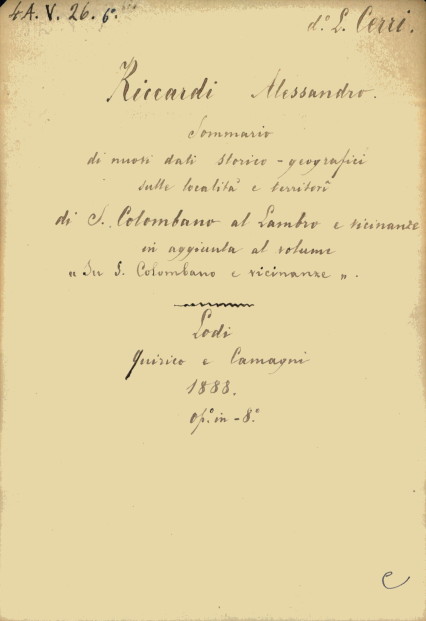 4A. V. 26. 6°
d.° L. Cerri.
Riccardi Alessandro.
Sommario
di nuovi dati storico-geografici
sulle località e territorî
di S. Colombano al Lambro e vicinanze
in aggiunta al volume
„ Su S. Colombano e vicinanze „.
Lodi
Quirico e Camagni
1888.
op.° in-8.°
C